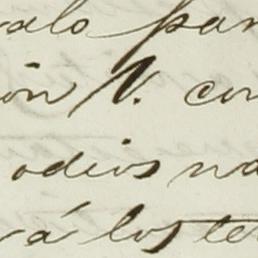 valo par
ón V. con
odios na
rá los te